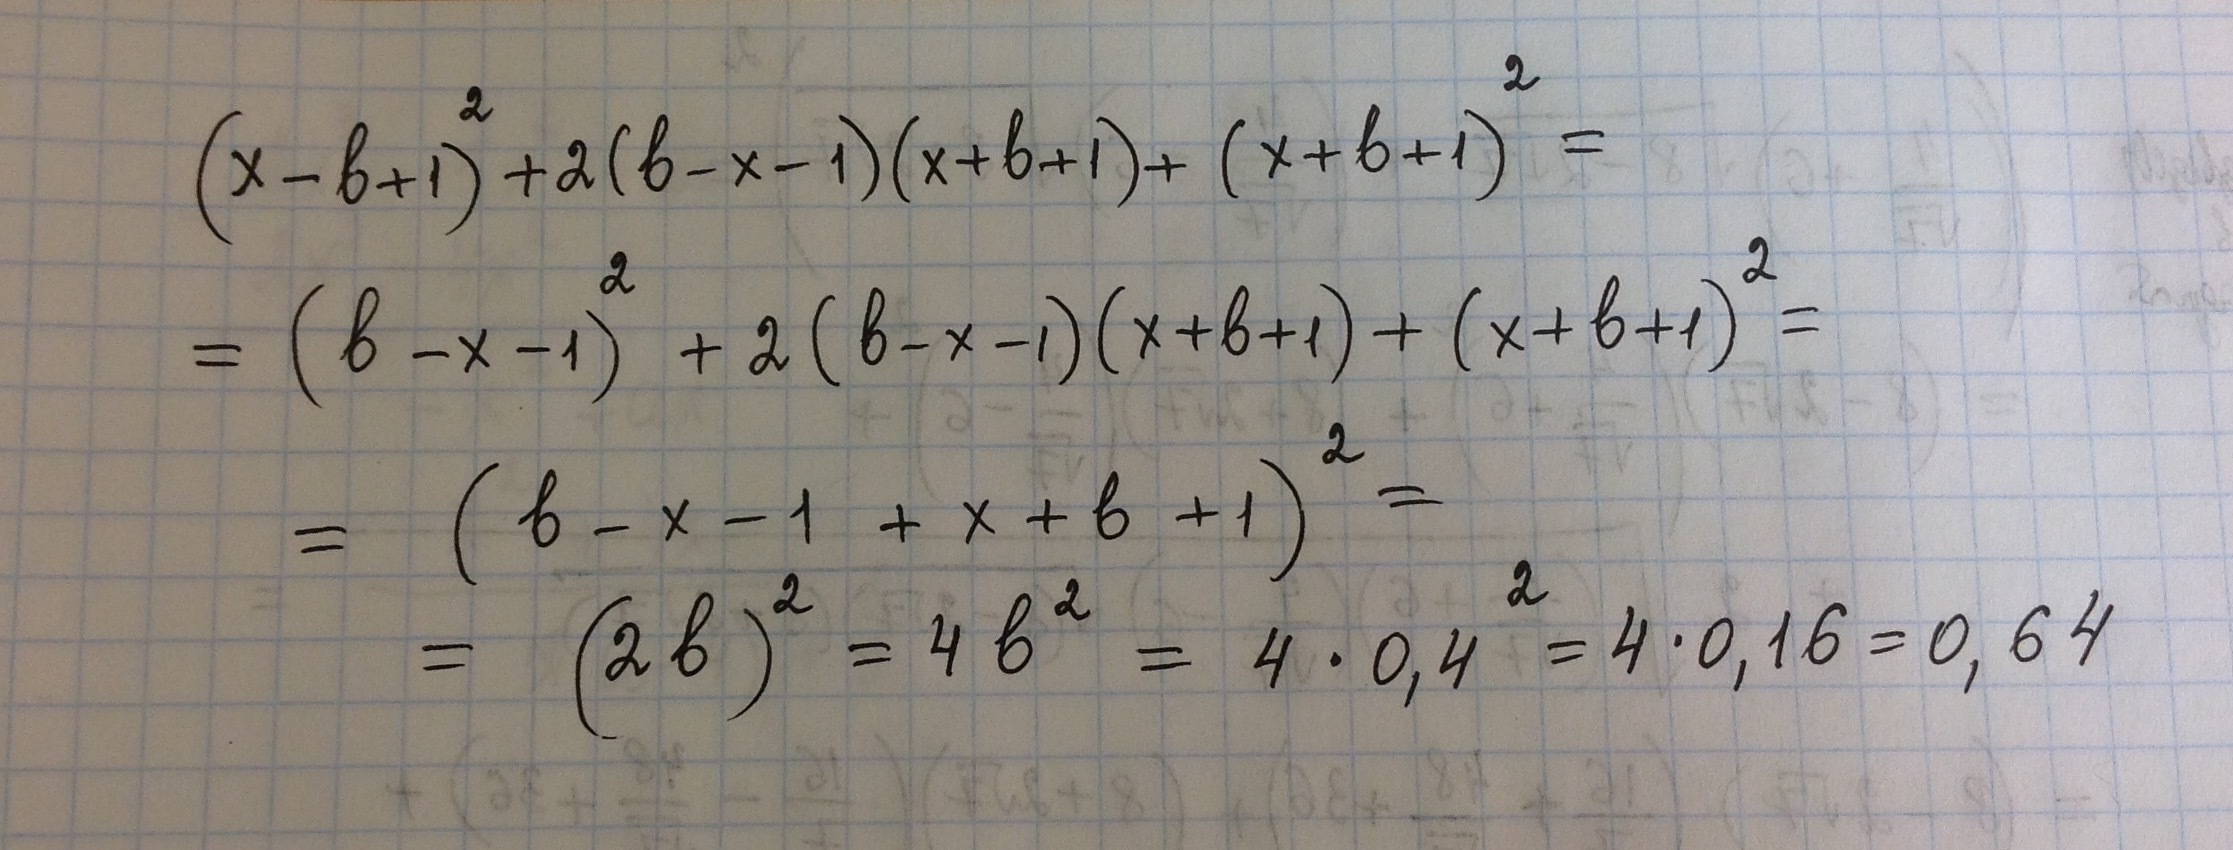 (x-b+1)² + 2(b-x-1)(x+b+1) + (x+b+1)² =
= (b-x-1)² + 2(b-x-1)(x+b+1) + (x+b+1)² =
= (b-x-1+x+b+1)² =
= (2b)² = 4b² = 4·0,4² = 4·0,16 = 0,64